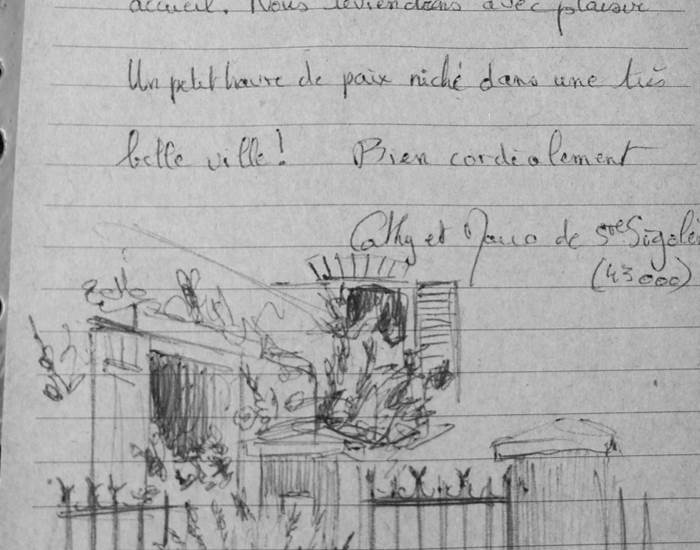 accueil. Nous reviendrons avec plaisir
Un petit havre de paix niché dans une très
belle ville! Bien cordialement
Cathy et de Ste Sigolè
(43000)